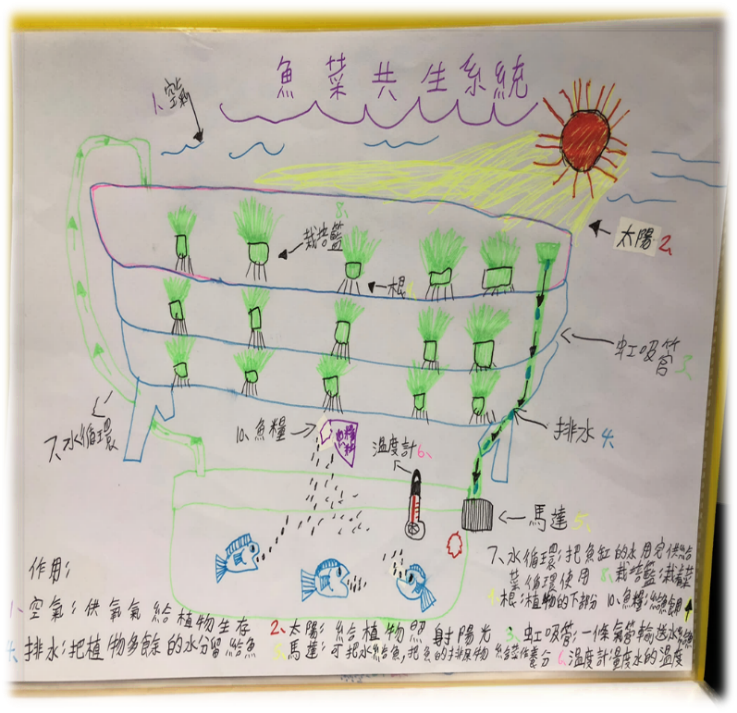 魚菜共生系統
1、空氣
太陽 2、
8、
栽培籃
根
虹吸管 3、
7、水循環
10、魚糧
魚糧料
溫度計 6、
排水 4、
馬達 5、
作用：
1、空氣：供氧氣給植物生存
2、太陽：給植物照射陽光
3、虹吸管：一條氣管輸送水
4、排水：把植物多餘的水分留給魚
5、馬達：可把水給魚，把魚的排
6、溫度計量度水的溫度
7、水循環：把魚缸的水用完供給
菜循環使用 8、栽培籃：栽
9、根：植物的下部分 10、魚糧：給魚